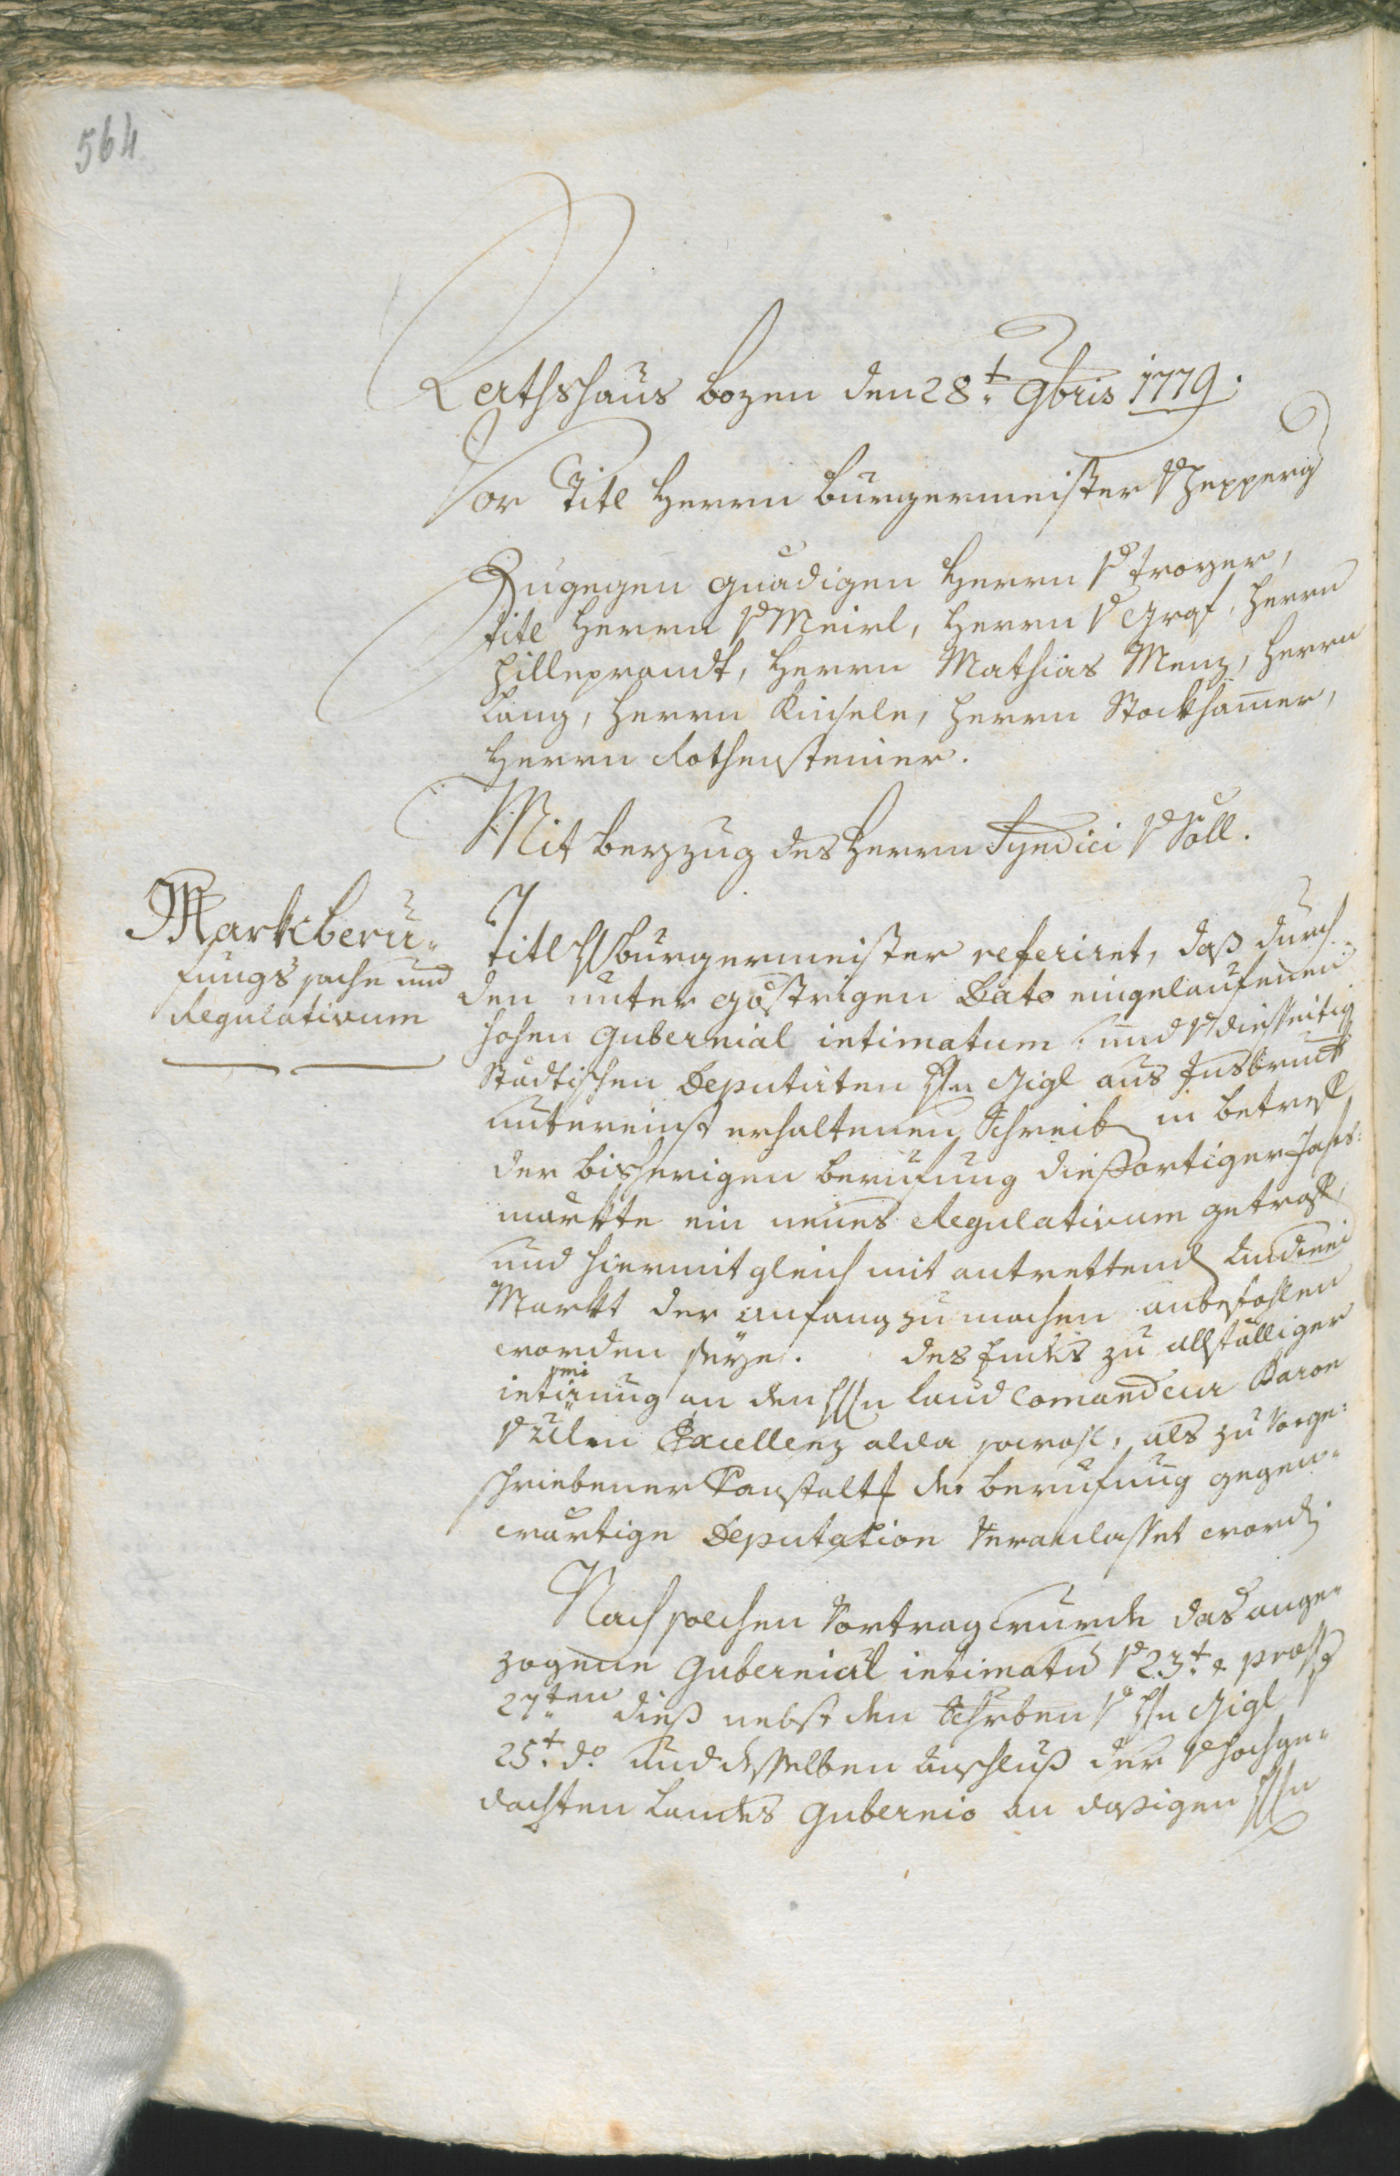 564
Rathshaus bozen den 28.t 9bris 1779.
Vor Titl Herrn burgermeister v Zepperg
Zugegen gnädigen Herrn v Troyer,
titl Herrn v Meirl, Herrn v Graf, Herrn
Hilleprandt, Herrn Mathias Menz, Herrn
Lang, Herrn Kinsele, Herrn Stockhamer,
Herrn Rothensteiner.
Mit beyzug des Herrn Syndici v Söll.
Markberu-
fungs sache und
Regulativum
Titl H burgermeister referiret, daß durch
den unter gestrigen Dato eingelaufenen
hohen Gubernial intimatum, und v diesseitig
Städtischen Deputirten Hn Gigl aus Insbruck
untereinst erhaltenen Schreib in betref
der bisherigen beruffung dießortiger Jahr-
märkte ein neues Regulativum getrof,
und hiermit gleich mit antrettend Andreei
Markt der anfang zu machen anbefohlen
worden seye. des Endes zu allfälliger
intimirung an den HHn Land Comandeur Baron
v Ulm Excellenz alda sowohl, als zu vorge-
schriebener Veranstalt der beruffung gegen-
wärtige Deputation veranlasset word
Nach solchen Vortrag wurde das ange-
zogene Gubernial intimatum v 23.t &
27.ten dieß nebst den Schrben v Hn Gigl
25.t do. und desselben anschluß der v hochge-
dachten Landes Gubernio an dasigen HHn